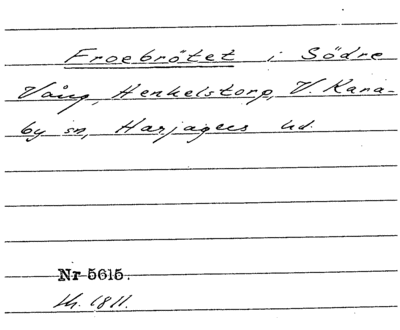 Froebrötet i Södre
Vång, Henkelstorp, V. Kara-
by sn, Harjagers hd.
Nr 5615.
th. 1811.